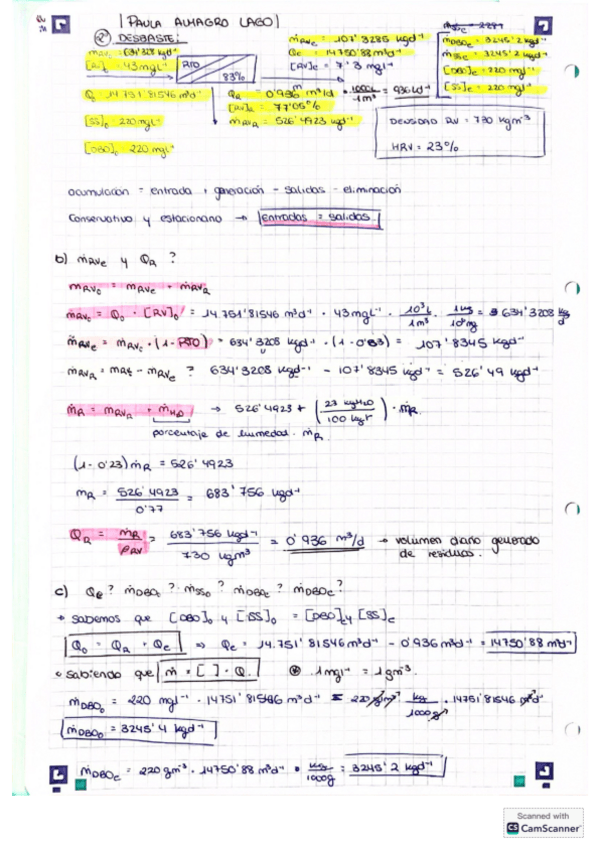 PAULA ALMAGRO LAGO
2º DESBASTE:
ṁRV₀ = 634'328 kgd⁻¹
[RV]₀ = 43 mgL⁻¹
RTO
83%
Q₀ 14751'81546 m³d⁻¹
[SS]₀ = 220 mgL⁻¹
[DBO]₀ 220 mgL⁻¹
ṁRVe = 107'3285 kgd⁻¹
Qe = 14750'88 m³d⁻¹
[RV]e = 7'3 mgL⁻¹
QR = 0'936 m³/d · 1000L/1m³ = 936 Ld⁻¹
[RV]R = 77'05%
ṁRVR = 526'4923 kgd⁻¹
ṁDBOe = 3245'2 kgd⁻¹
ṁSSe = 3245'2 kgd⁻¹
[DBO]e = 220 mgL⁻¹
[SS]e = 220 mgL⁻¹
DENSIDAD RV = 730 kgm⁻³
HRV = 23%
acumulación = entrada + generación - salidas - eliminación
Conservativo y estacionario → entradas = salidas
b) ṁRVe y QR ?
ṁRV₀ = ṁRVe + ṁRVR
ṁRV₀ = Q₀ · [RV]₀ = 14.751'81546 m³d⁻¹ · 43 mgL⁻¹ · 10³L/1m³ · 1kg/10⁶mg = 634'3208 kg/d
ṁRVe = ṁRV₀ · (1 - RTO) = 634'3208 kgd⁻¹ · (1 - 0'83) = 107'8345 kgd⁻¹
ṁRVR = mRV₀ - ṁRVe ? 634'3208 kgd⁻¹ - 107'8345 kgd⁻¹ = 526'49 kgd⁻¹
ṁR = ṁRVR + ṁH₂O → 526'4923 + (23 kgH₂O/100 kgr) · ṁR.
porcentaje de humedad · ṁR
(1 - 0'23) ṁR = 526'4923
mR = 526'4923/0'77 = 683'756 kgd⁻¹
QR = ṁR/ρRV = 683'756 kgd⁻¹/730 kgm³ = 0'936 m³/d → volumen diario generado
de residuos.
c) Qe ? ṁDBO₀ ? ṁSS₀ ? ṁDBOe ? ṁDBOe ?
• sabemos que [DBO]₀ y [SS]₀ = [DBO]e y [SS]e
Q₀ = QR + Qe ⇒ Qe = 14.751'81546 m³d⁻¹ - 0'936 m³d⁻¹ = 14750'88 m³d⁻¹
• sabiendo que ṁ = [ ] · Q. 1 mgL⁻¹ = 1 gm⁻³.
ṁDBO₀ = 220 mgL⁻¹ · 14751'81546 m³d⁻¹ = 220 g/m³ · kg/1000g · 14751'81546 m³d⁻¹
ṁDBO₀ = 3245'4 kgd⁻¹
ṁDBOe = 220 gm⁻³ · 14750'88 m³d⁻¹ · kg/1000g = 3245'2 kgd⁻¹
Scanned with
CS CamScanner